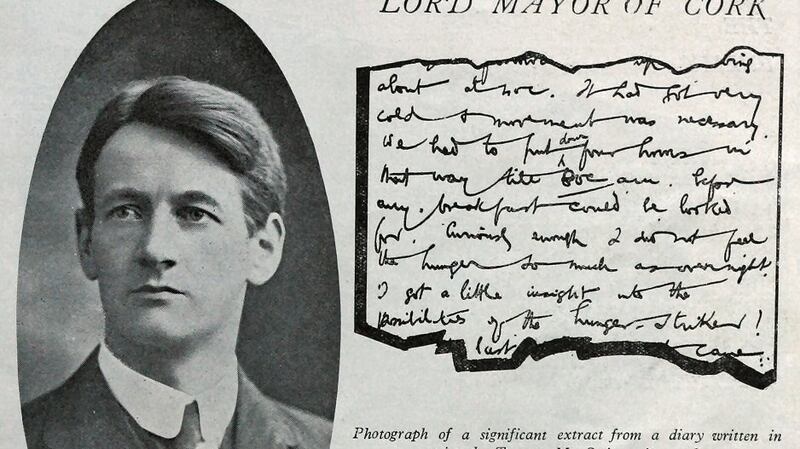 LORD MAYOR OF CORK
about
cold & movement was necessary.
We had to put down four hours in
that way till 8oc am. before
any breakfast could be looked
for. Curiously enough I did not feel
the hunger so much as overnight.
I got a little insight into the
possibilities of the hunger-striker!
last came
Photograph of a significant extract from a diary written in